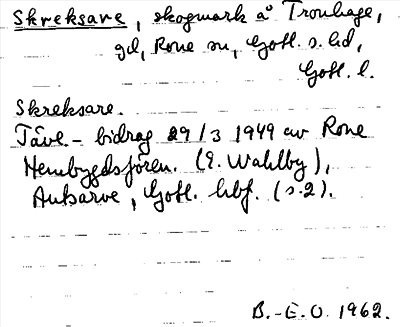 Skreksare, skogmark å Tronhage,
gd, Rone sn, Gotl. s. hd,
Gotl. l.
Skreksare.
Täve- bidrag 29/3 1949 av Rone
Hembygdsfören. (E. Wahlby),
Autsarve, Gotl. hbf. (s.2).
B.-E.O. 1962.